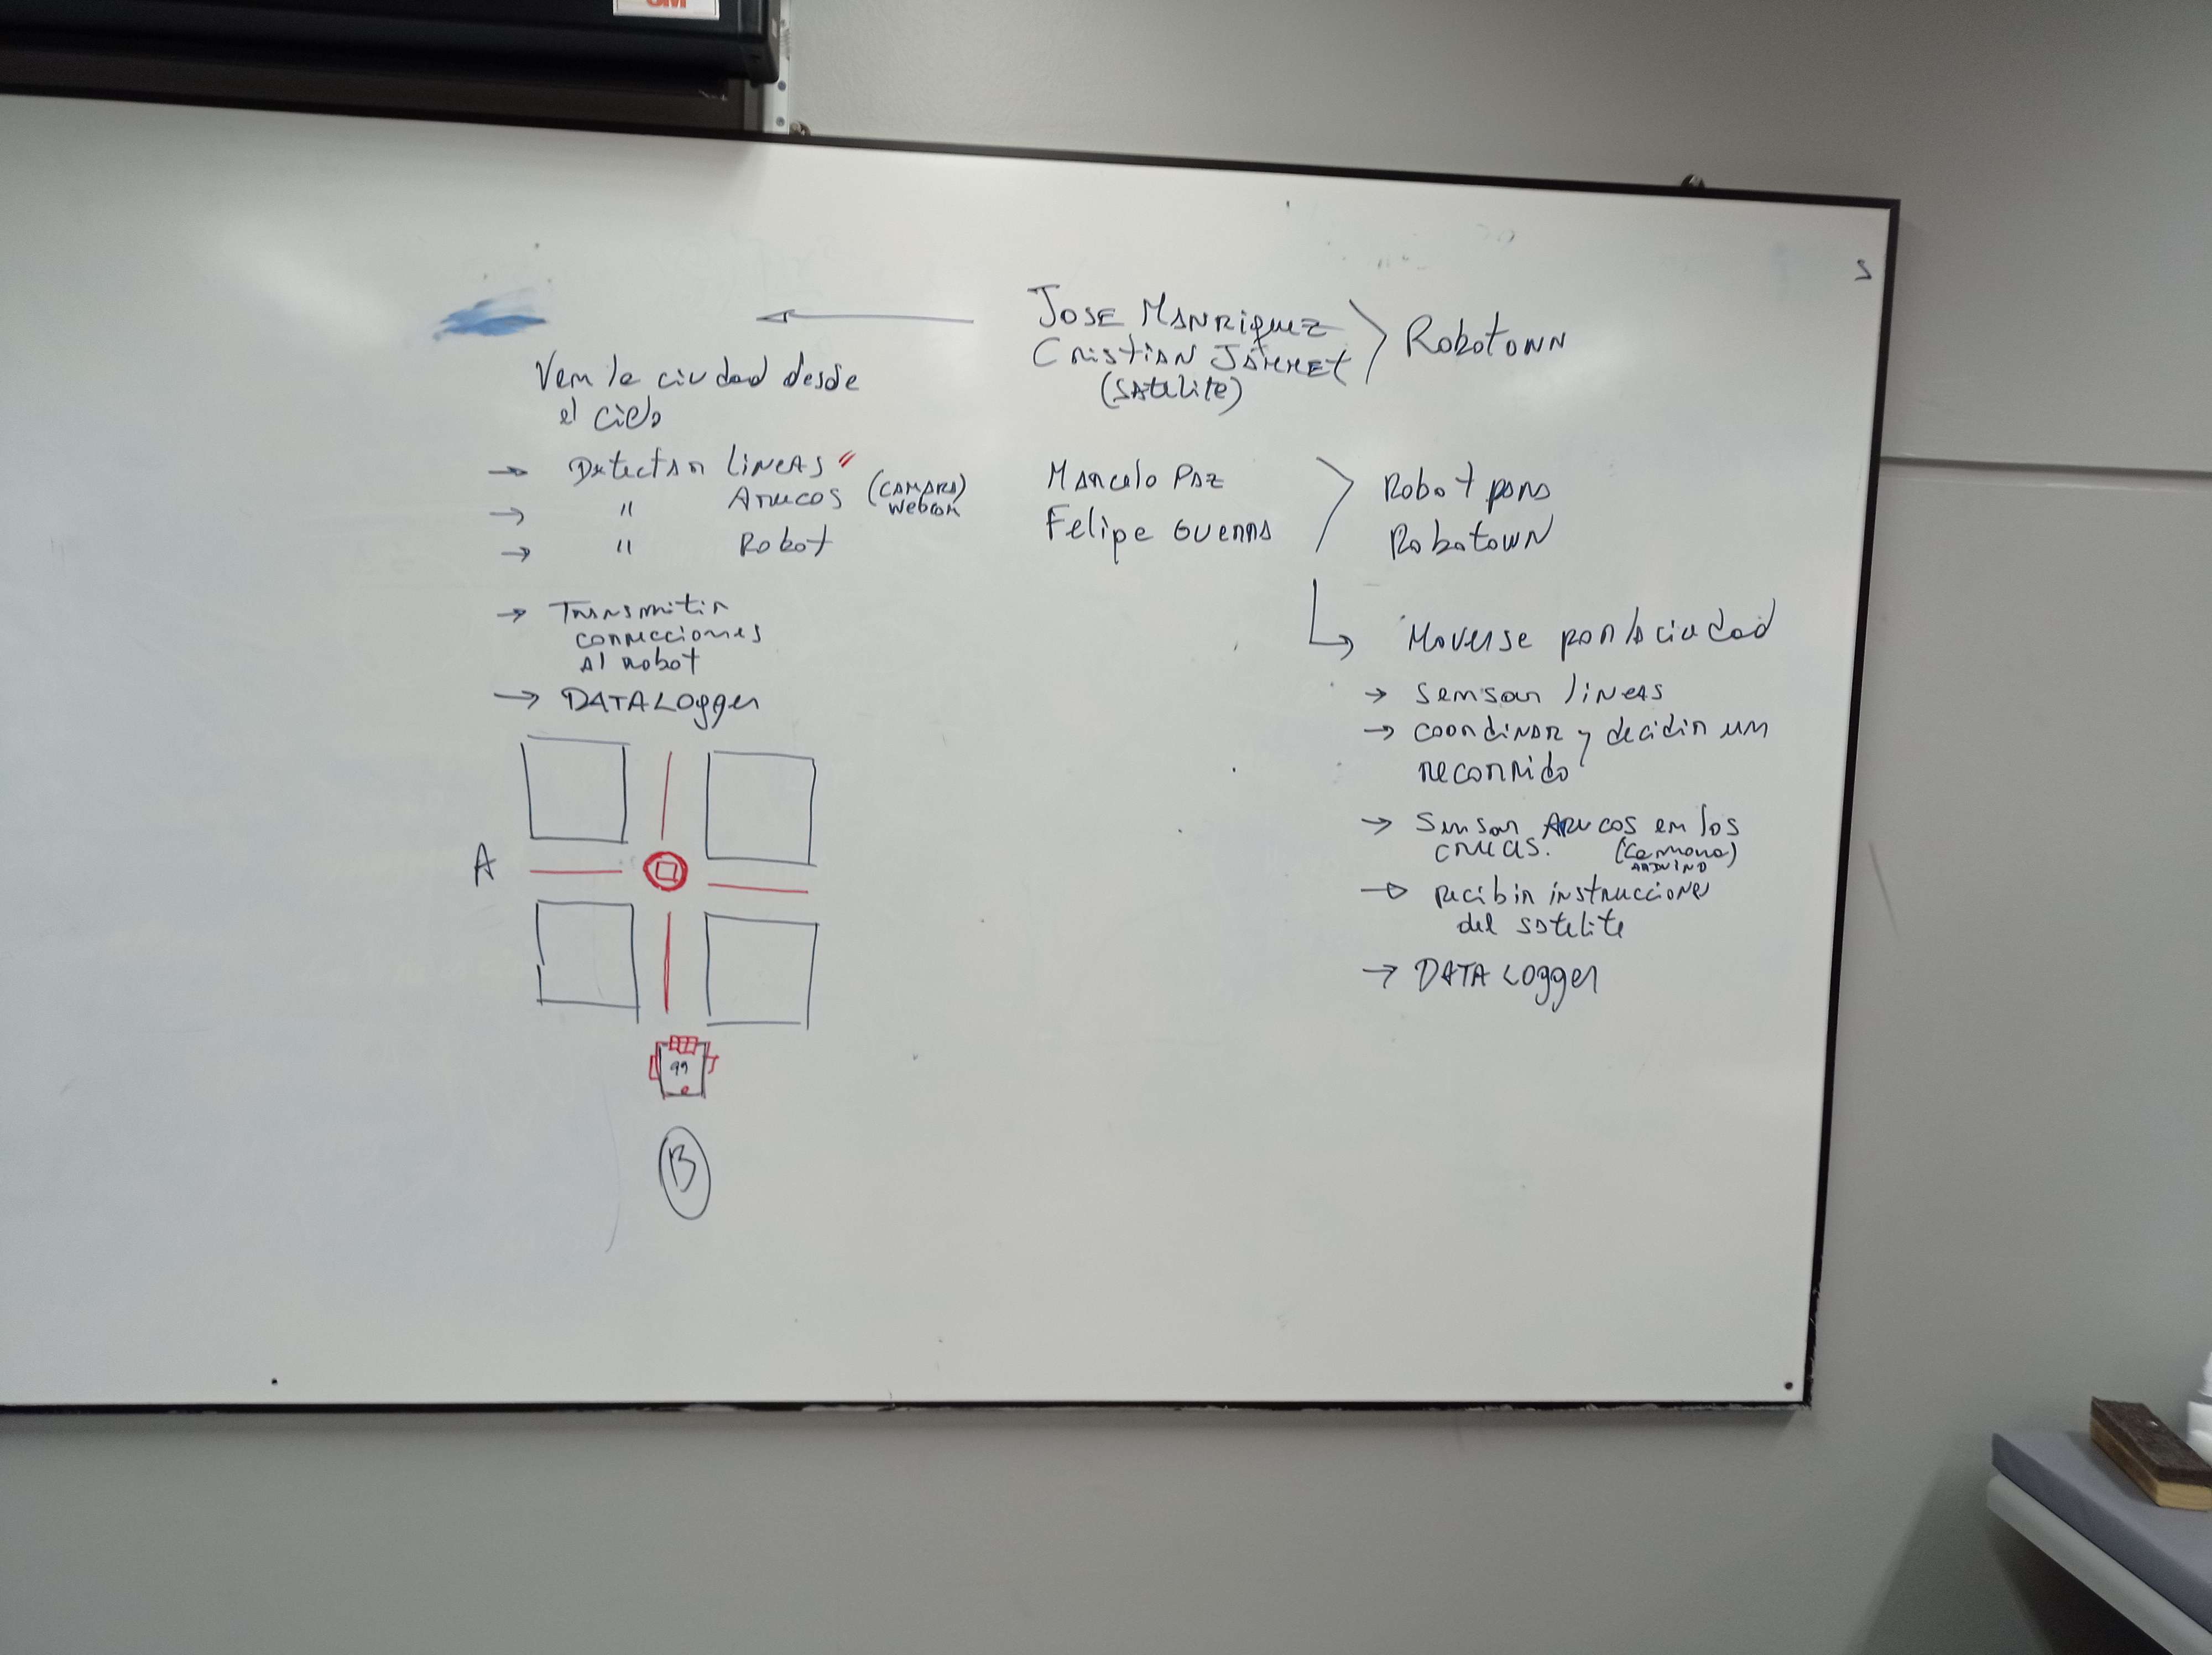 3M
S
JOSE MANRIQUEZ
CRISTIAN JAMMET
(SATELITE)
ROBOTOWN
Ver la ciudad desde
el cielo
→ Detectar LINEAS "
→ " Arucos (CAMARA)
webcam
→ " Robot
→ Transmitir
correcciones
al robot
→ DATA Logger
Marcelo PAZ
Felipe GUERRA
Robot para
RobotowN
Moverse por la ciudad
→ Sensar lineas
→ coordinar y decidir un
recorrido
→ Sensar ARUCOS en los
cruces. (Camara)
ARDUINO
→ recibir instrucciones
del satelite
→ DATA Logger
A
99
B